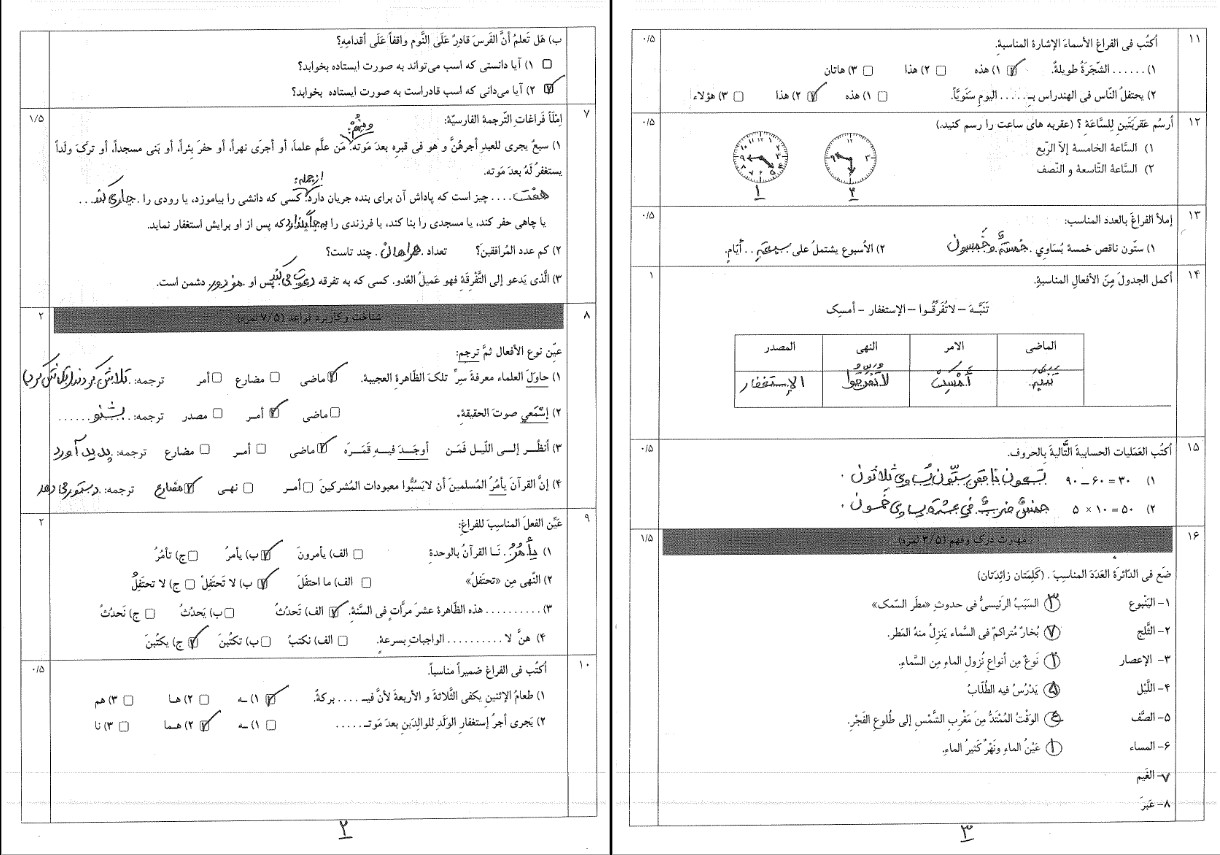 ب) هَل تَعلمُ أنَّ الفَرَسَ قادِرٌ عَلَی النَّومِ واقفاً عَلَی أقدامِهِ؟
۱) آیا دانستی که اسب می‌تواند به صورت ایستاده بخوابد؟
۲) آیا می‌دانی که اسب قادراست به صورت ایستاده بخوابد؟
۷ اِملَأ فَراغاتِ التَّرجمةِ الفارسیَّة: ۱/۵
۱) سبعٌ یجری للعبدِ أجرهُنَّ و هو فی قبرِه بعدَ مَوته: مَن علَّم علماً، أو أجری نهراً، أو حفرَ بِئراً، أو بَنی مسجداً، أو ترکَ ولداً
یستغفرُ لَهُ بعدَ مَوته.
هفت .... چیز است که پاداش آن برای بنده جریان دارد: کسی که دانشی را بیاموزد، یا رودی را . جاری کند ...
یا چاهی حفر کند، یا مسجدی را بنا کند، یا فرزندی را به جا بگذارد که پس از او برایش استغفار نماید.
۲) کم عدد المُرافقین؟ تعداد همراهان . چند تاست؟
۳) الَّذی یَدعو إلی التَّفرِقَةِ فهو عَمیلُ العَدو. کسی که به تفرقه دعوت می‌کند پس او مزدور دشمن است.
۸ شناخت وکاربرد قواعد (۷/۵ نمره) ۲
عیِّن نوع الأفعال ثمَّ ترجِم:
۱) حاوَلَ العلماء معرفةَ سرِّ تلکَ الظّاهرةِ العجیبةِ. ماضی مضارع أمر ترجمه:
۲) إسْمَعي صوتَ الحقیقةِ. ماضی أمـر مصدر ترجمه: بشنو ......
۳) اُنظُـر إلـی اللَّیـلِ فَمَـن أوجَـدَ فیـهِ قَمَـرَه ماضی أمـر مضارع ترجمه: پدید آورد
۴) إنَّ القرآنَ یأمُرُ المُسلمینَ أن لایَسُبُّوا معبودات المُشرکینَ أمـر نهـی مضارع ترجمه: دستور می دهد
۹ عَیِّن الفعلَ المناسِبَ للفراغ: ۲
۱) یأمُرُ . نَـا القرآنُ بالوحدةِ الف) یأمرونَ ب) یأمرُ ج) تأمُرُ
۲) النّهی مِن «تحتَفلُ» الف) ما احتفَلَ ب) لا تَحتَفِلْ ج) لا تحتَفِلُ
۳) .......... هذه الظّاهرة عشرَ مرّاتٍ فی السَّنةِ. الف) تَحدُثُ ب) یَحدُثُ ج) نَحدُثُ
۴) هنَّ لا .......... الواجباتِ بسرعةٍ. الف) نکتبُ ب) تکتُبنَ ج) یکتُبنَ
۱۰ اُکتُب فی الفراغ ضمیراً مناسباً. ۰/۵
۱) طعامُ الإثنَینِ یکفی الثَّلاثةَ و الأربعةَ لأنَّ فیـ..... برکةً. ۱) ـه ۲) هـا ۳) هم
۲) یَجری أجرُ إستغفارِ الوَلَدِ للوالِدَینِ بعدَ مَوتـ..... ۱) ـه ۲) هـما ۳) نا
۲
۱۱ اُکتُب فی الفراغ الأسماءَ الإشارة المناسبةِ. ۰/۵
۱) ...... الشَّجَرَةُ طویلةٌ. ۱) هذه ۲) هذا ۳) هاتان
۲) یحتفلُ النّاس فی الهندراس بِـ...... الیومِ سَنَویّاً. ۱) هذه ۲) هذا ۳) هؤلاء
۱۲ اُرسُم عَقربَتَینِ لِلسَّاعَةِ ؟ (عقربه های ساعت را رسم کنید.) ۰/۵
۱) السَّاعة الخامسة إلاّ الرّبع
۲) السَّاعة التّاسعة و النّصف
۱ ۲
۱۳ إملأ الفراغَ بالعدد المناسب: ۰/۵
۱) ستّون ناقص خمسة یُساوِي . خمسةٌ و خمسون ۲) الأسبوع یشتملُ علی سبعة .. أیّامٍ.
۱۴ أکمل الجَدولَ مِنَ الأفعالِ المناسبةِ. ۱
تَنَبَّـهَ – لاتُفَرِّقُـوا – الإستغفار – أمسِک
الماضی الامر النهی المصدر
أَمْسِكْ لاتُفَرِّقوا الإستغفار
۱۵ اُکتُب العَمَلیات الحسابیةَ التَّالیةَ بِالحروف. ۰/۵
۱) ۹۰ – ۶۰ = ۳۰ تسعون ناقص ستّون یُساوی ثلاثون .
۲) ۵ × ۱۰ = ۵۰ خمسةٌ ضربٌ فی عشرة یساوی خمسون .
۱۶ مهارت درک وفهم (۳/۵ نمره) ۱/۵
ضَع فی الدَّائرةِ العَدَدَ المناسِبَ . (کَلِمَتان زائِدَتان)
۱– الیَنبوع ۳ السَبَبُ الرَّئیسیُّ فی حدوثِ «مطَر السَّمک»
۲– الثَّلج ۷ بُخارٌ مُتراکمٌ فی السَّماءِ یَنزِلُ منهُ المَطر.
۳– الإعصار ۲ نَوعٌ مِن أنواع نُزولِ الماءِ مِن السَّماءِ.
۴– اللَّیْل ۵ یَدْرُسُ فیه الطُلّابُ
۵– الصَّف ۴ الوَقْتُ المُمْتَدُّ مِنَ مَغْرِبِ الشَّمْسِ إلی طُلوعِ الفَجْرِ.
۶– المساء ۱ عَیْنُ الماءِ ونَهْرٌ کَثیرُ الماءِ.
۷– الغَیم
۸– عَبَرَ
۳